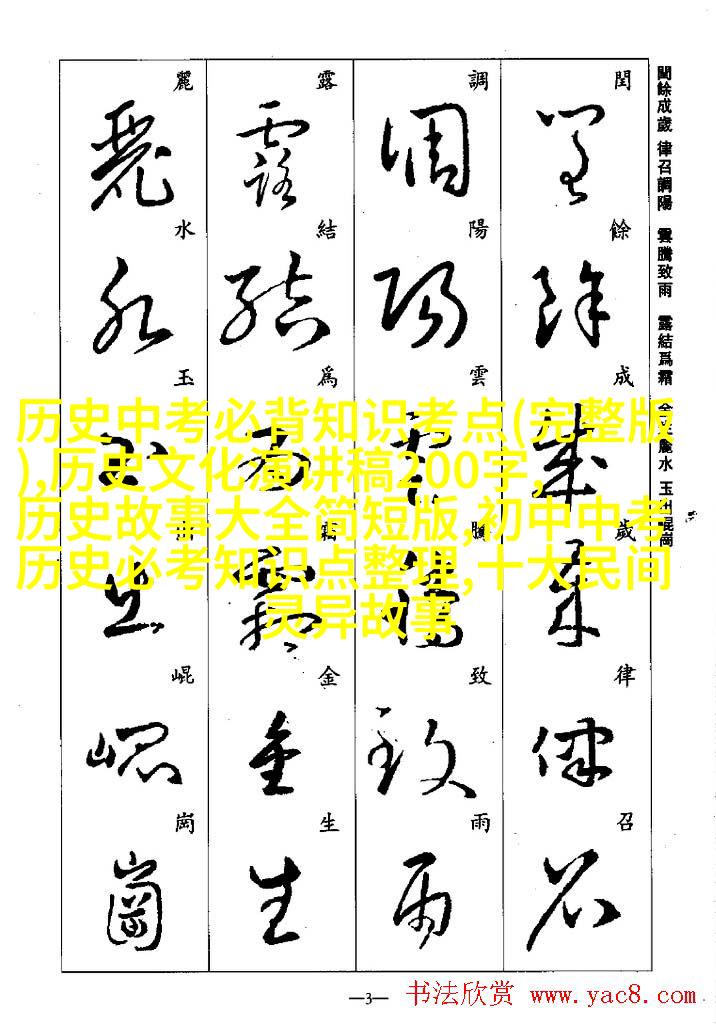 閏餘成歲 律召調陽 雲騰致雨 露結爲霜 金生麗水 玉出崐崗
閏 餘 成 歲 律 召
調 陽 雲 騰 致 雨
露 結 爲 霜 金 生
麗 水 玉 出 崐 崗
历史中考必背知识考点(完整版
),历史文化演讲稿200字,
历史故事大全简短版,初中中考
历史必考知识点整理,十大民间
灵异故事
—3—
书法欣赏 www.yac8.com